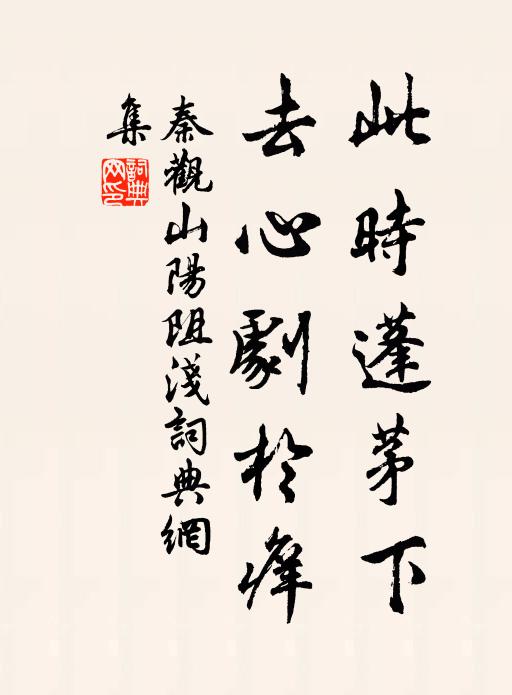 此時蓬茅下
去心劇於癢
秦觀山陽阻淺詞典網
集
詞典網印